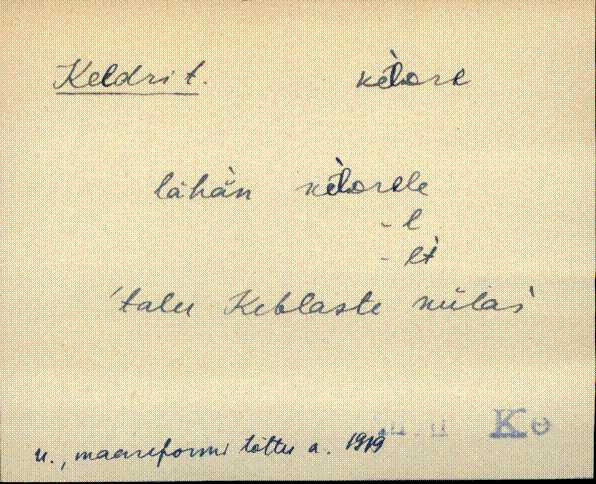 Keldrit. kèlorl
lähän kèlorele
- l
- lt
'talu Keblaste külas'
Ko
u., maareformi tõttu a. 1919